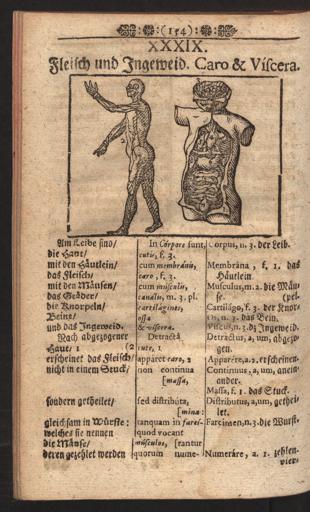 (154)
XXXIX.
Fleisch und Ingeweid. Caro & Viscera.
Am Leibe sind/
die Haut/
mit den Häutlein/
das Fleisch/
mit den Mäusen/
das Geäder/
die Knorpeln/
Beine/
und das Ingeweid.
Nach abgezogener
Haut/ 1 (2
erscheinet das Fleisch/
nicht in einem Stuck/
sondern getheilet/
gleichsam in Würste:
welches sie nennen
die Mäuse/
deren gezehlet werden
In Corpore sunt,
cutis, f. 3.
cum membranis,
caro, f. 3.
cum musculis,
canalis, m. 3. pl.
cartilagines,
ossa
& viscera.
Detractâ
cute, 1
apparet caro, 2
non continua
[massa,
sed distributa,
[mina:
tanquam in farci-
quod vocant
musculos, [rantur
quorum nume-
Corpui, n. 3. der Leib.
Membrâna, f. 1. das
Häutlein
Musculus, m. 2. die Mäu-
se. (pel.
Cartilágo, f. 3. der Knor-
n. 3. das Bein.
Viscus, n. 3. dz Ingeweid.
Detractus, a, um, abgezo-
gen.
Apparére, a. 2. erscheinen.
Continuus, a, um, anein-
ander.
Massa, f. 1. das Stuck.
Distributus, a, um, gethei-
let.
Farcimen, n. 3. die Wurst.
Numeráre, a. 1. zehlen-
vier-